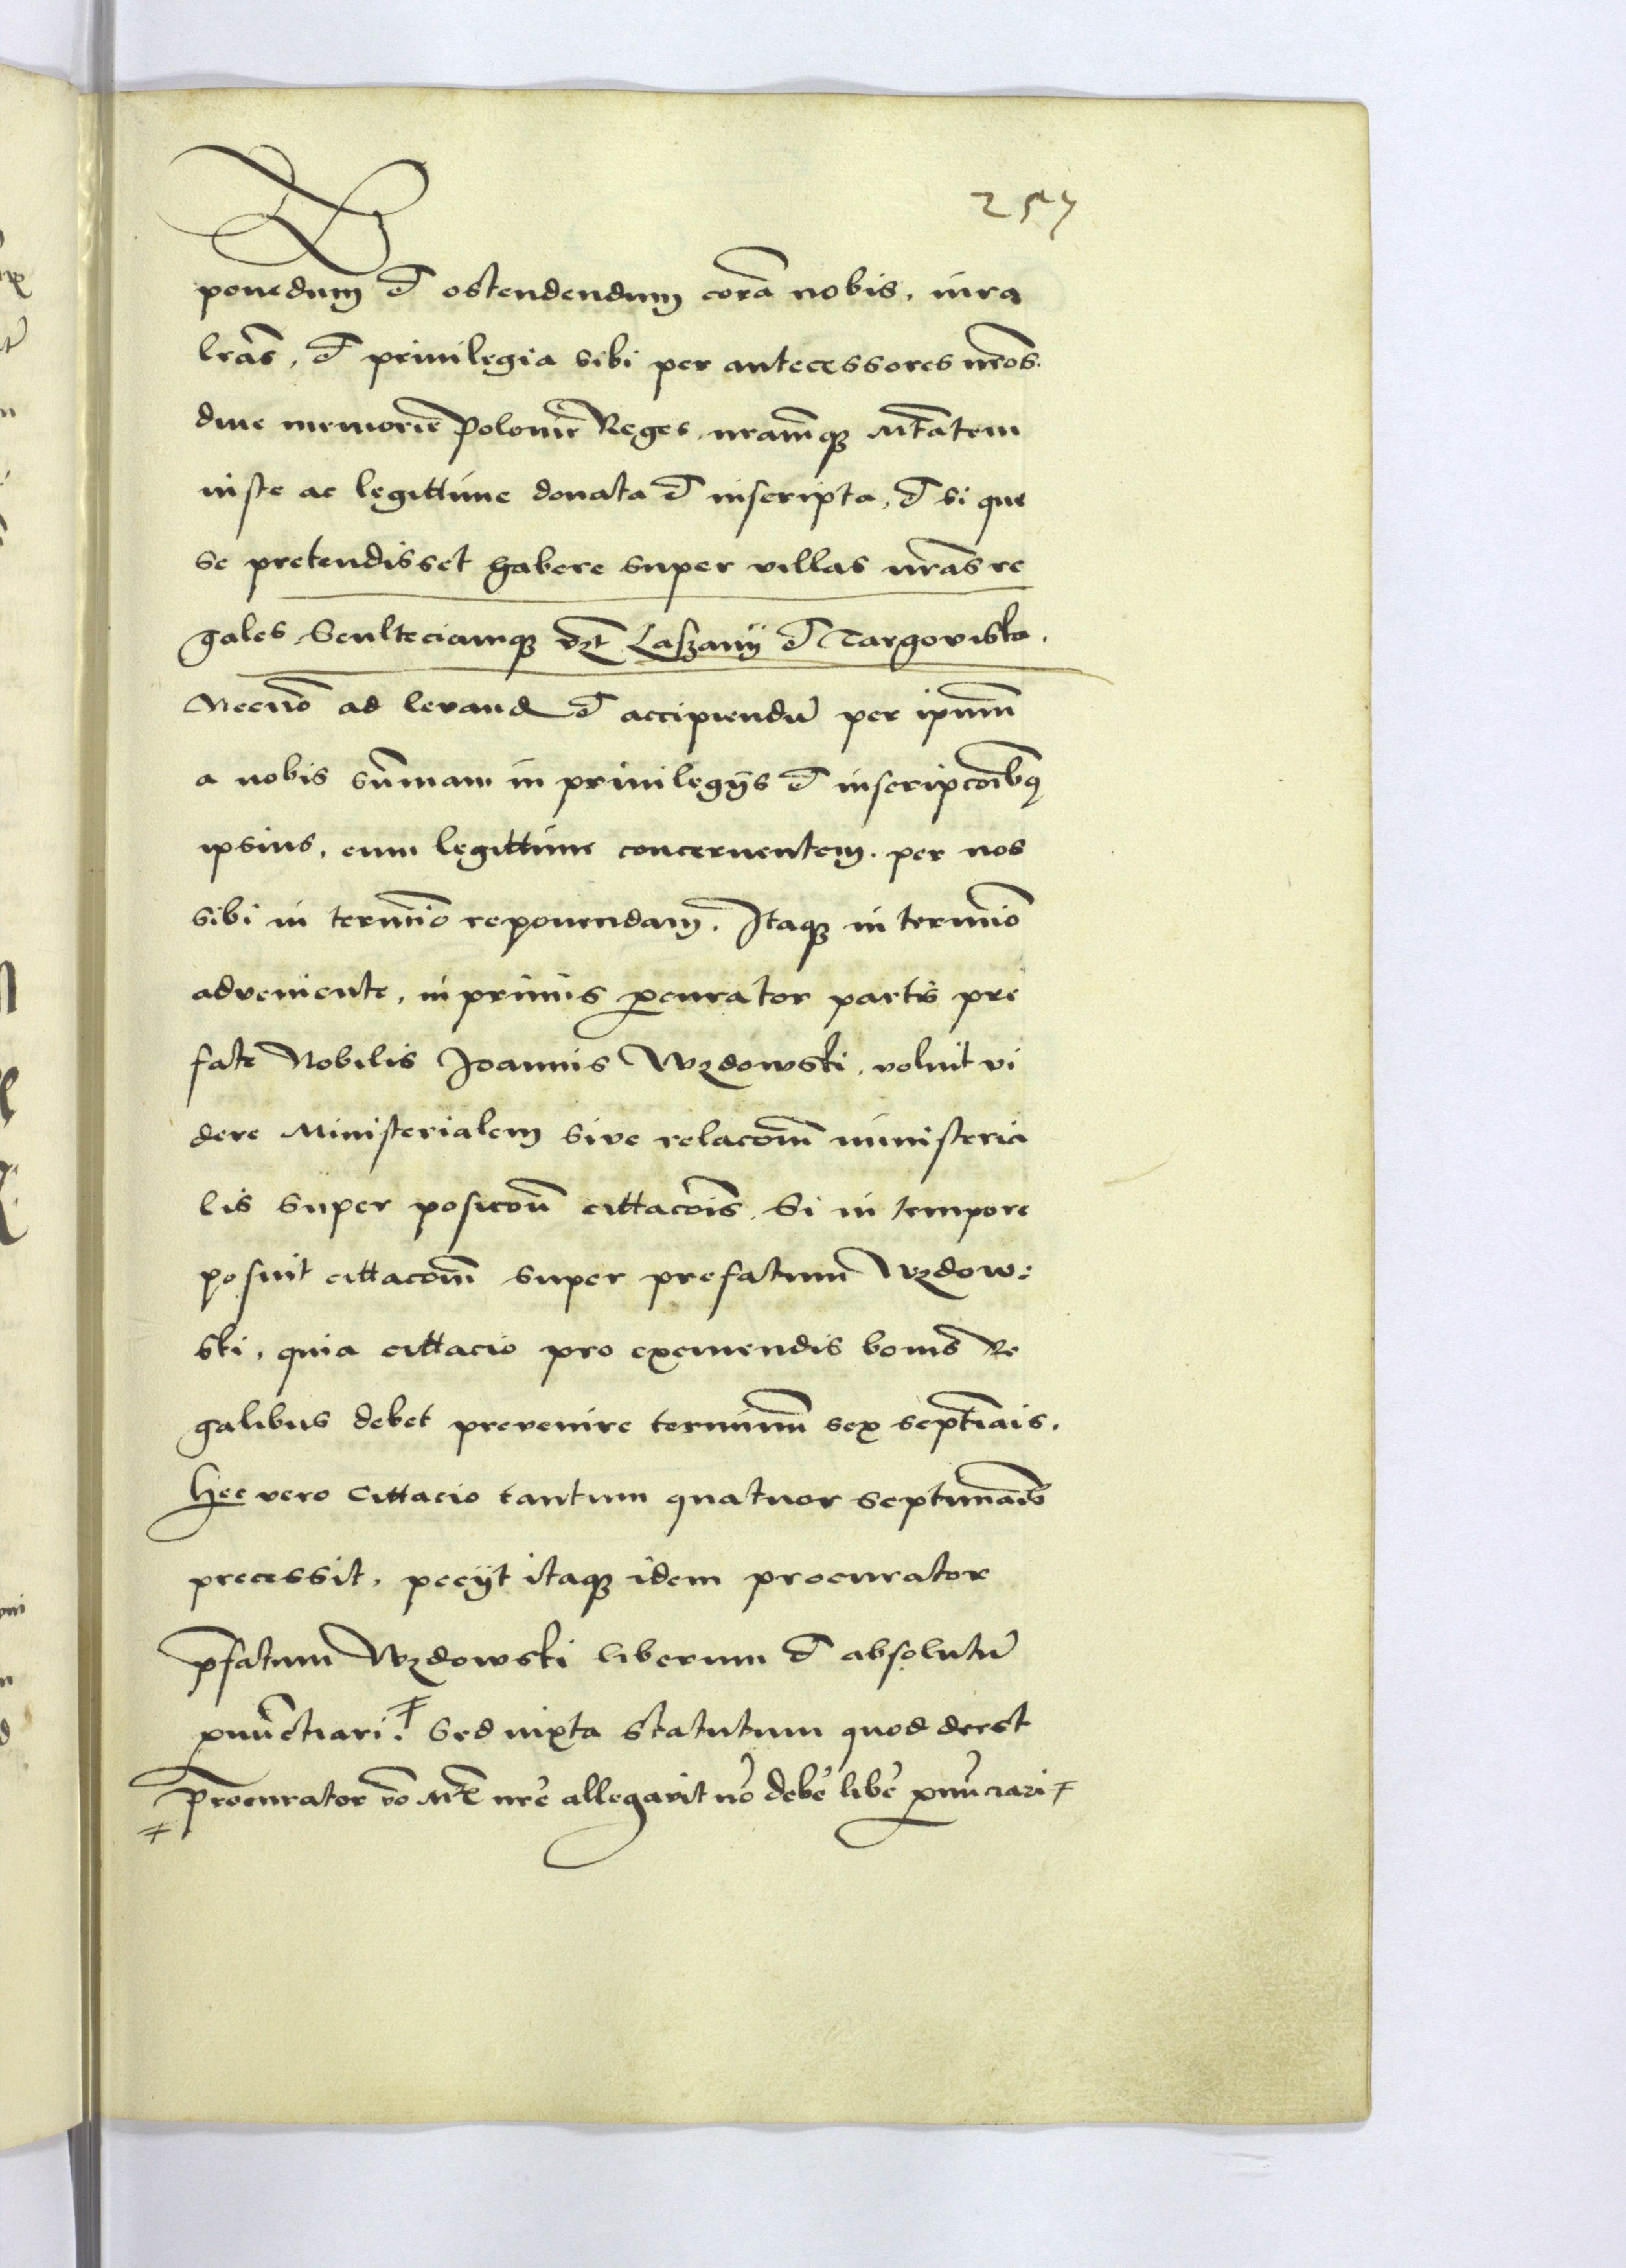 257
ponedum et ostendendum corā nobis, iura
lrās, et priuilegia sibi per antecessores nrōs.
diue memorie Polonie Reges, nramq̃ Mtātem
iuste ac legittime donata et inscripta, et si que
se pretendisset habere super villas nrās re
gales Sculteciamq̃ vzt Laszany et Targoviska.
Necnō ad levand et accipiendū per ipsum̄
a nobis sūmam in priuilegijs et inscripcōibq
ipsius, eum legittime concernentem. per nos
sibi in termīo reponendam. Itaq̃ in termīo
adveniente, in primis p̱curator partis pre
fate Nobilis Joannis Wzdowski, voluit vi
dere Ministerialem sive relacōm ministeria
lis super posicōe cittacōis. Si in tempore
posuit cittacōm super prefatum Wzdow:
ski, quia cittacio pro exemendis bonis Re
galibus debet prevenire terminū sex septīais.
hec vero Cittacio tantum quatuor septimāis
precessit, pecijt itaq̃ idem procurator
p̄fatum Wzdowski liberum et absolutū
p̱nūctiari. ǂ Sed iuxta statutum quod deest
ǂ Procurator vō Mtis nrē allegavit nō debē libē p̱nūciari ǂ